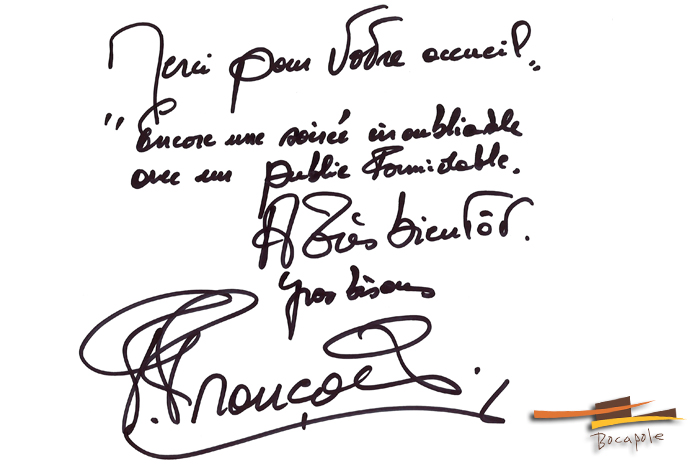 Merci pour Votre accueil.
" Encore une soirée inoubliable
avec un public Formidable.
A Très bientôt.
gros bisous
Bocapole